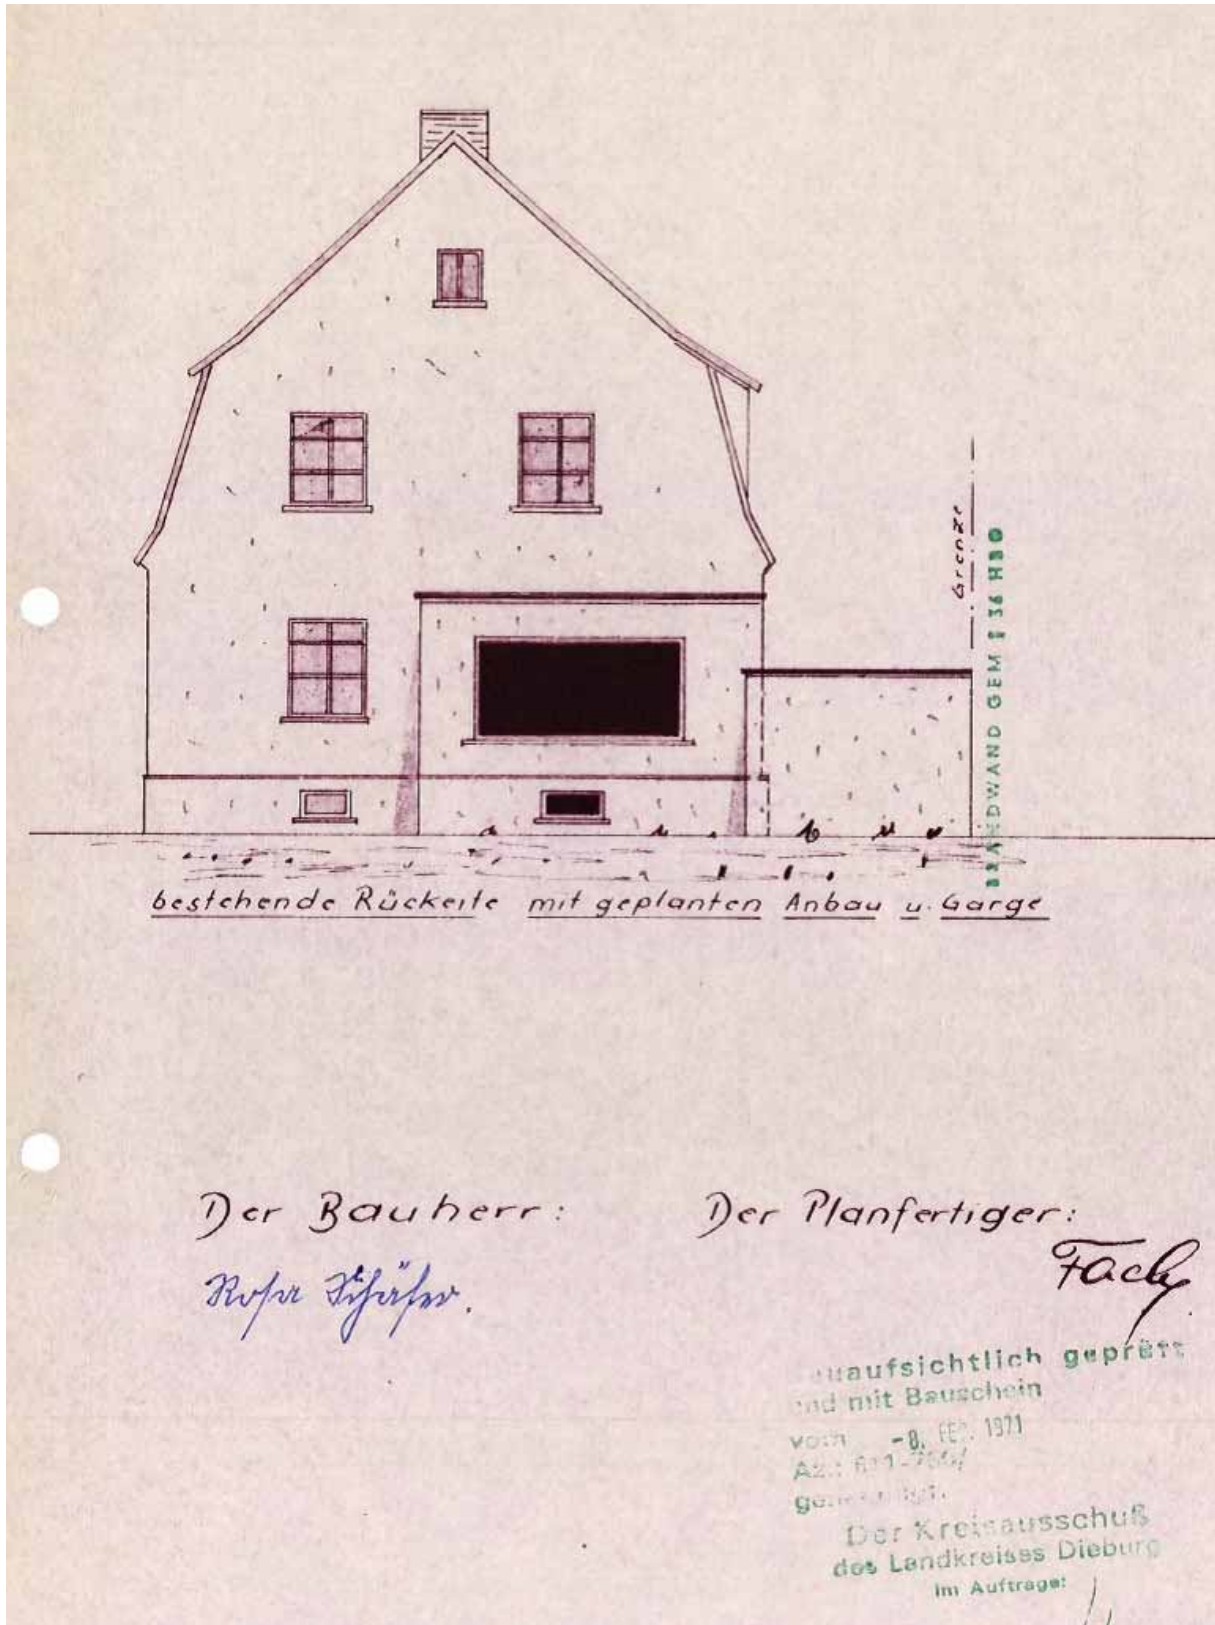 Grenze
BRANDWAND GEM § 36 HBO
bestehende Rückeite mit geplanten Anbau u. Garge
Der Bauherr: Der Planfertiger:
Rosa Schäfer.
geprüft
und mit Bauschein
vom -8. FEB. 1971
Az.:
Der Kreisausschuß
des Landkreises Dieburg
Im Auftrage: